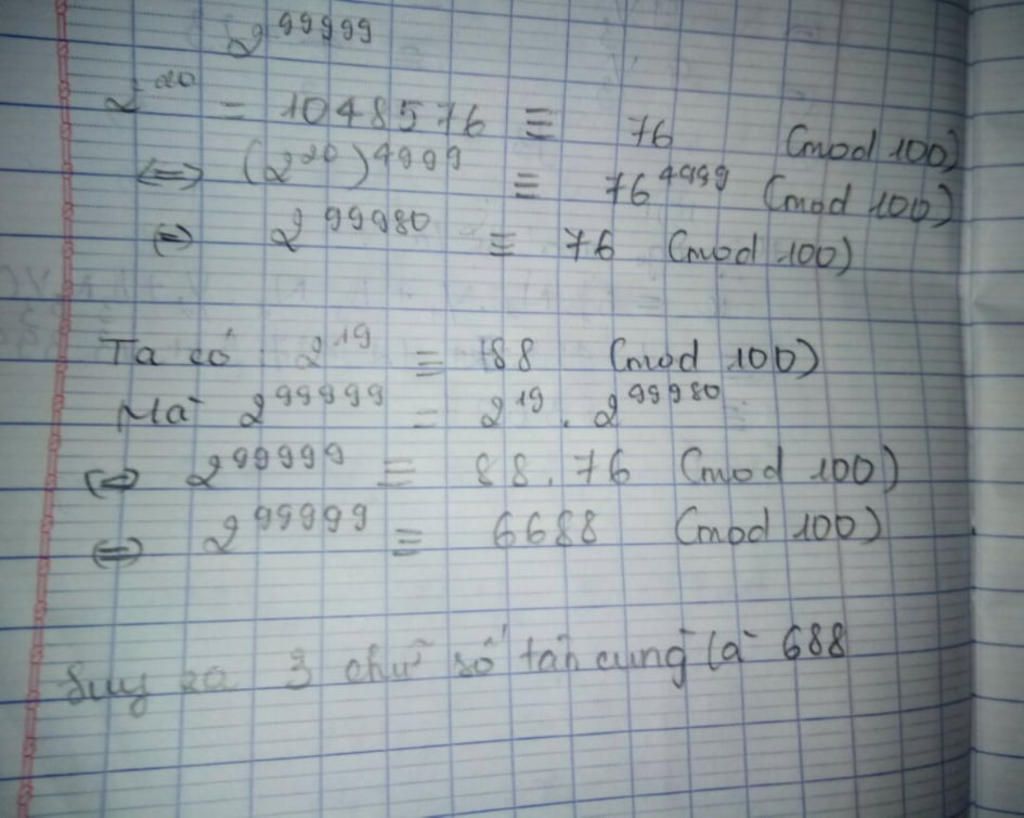 2^99999
2^20 = 1048576 ≡ 76 (mod 100)
⇔ (2^20)^4999 ≡ 76^4999 (mod 100)
⇔ 2^99980 ≡ 76 (mod 100)
Ta có 2^19 ≡ 88 (mod 100)
Mà 2^99999 = 2^19 . 2^99980
⇔ 2^99999 ≡ 88.76 (mod 100)
⇔ 2^99999 ≡ 6688 (mod 100)
Suy ra 3 chữ số tận cùng là 688